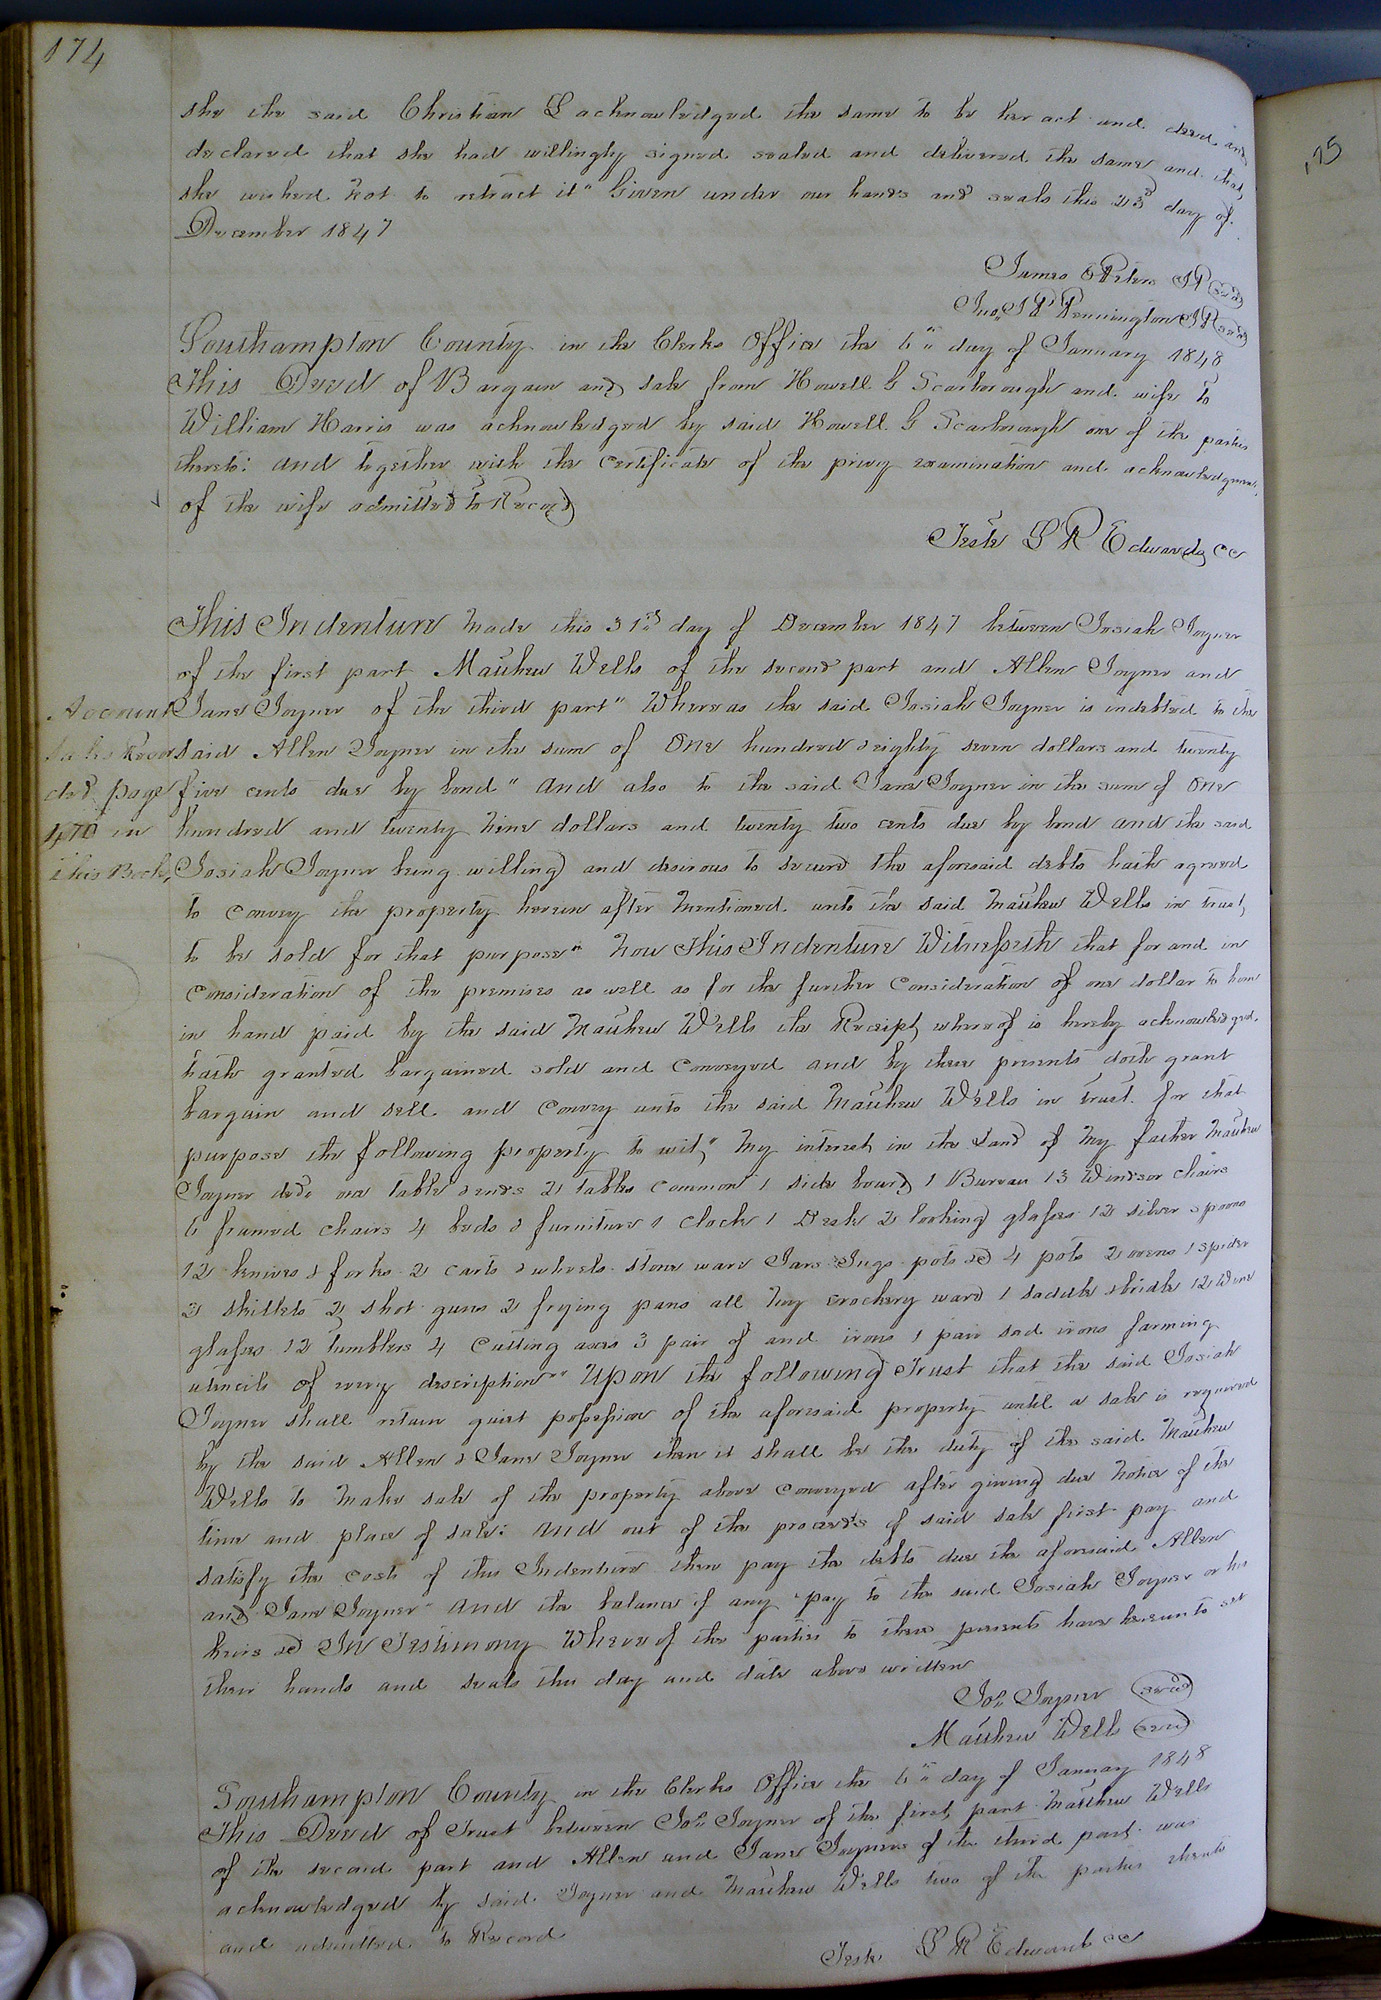 174
she the said Christian L acknowledged the same to be her act and deed and
declared that she had willingly signed sealed and delivered the same and that
she wished not to retract it" Given under our hands and seals this 23d day of
December 1847
James Peters JP (seal)
Jno. J P Pennington JP (seal)
Southampton County in the Clerks Office the 6" day of January 1848
This Deed of Bargain and sale from Howell G Scarborough and wife to
William Harris was acknowledged by said Howell G Scarborough one of the parties
thereto: and together with the certificate of the privy examination and acknowledgment
of the wife admitted to Record
Teste L R Edwards CC
This Indenture made this 31st day of December 1847 between Josiah Joyner
of the first part Matthew Wells of the second part and Allen Joyner and
Jane Joyner of the third part" Whereas the said Josiah Joyner is indebted to the
said Allen Joyner in the sum of One hundred & eighty seven dollars and twenty
five cents due by bond" and also to the said Jane Joyner in the sum of One
hundred and twenty nine dollars and twenty two cents due by bond and the said
Josiah Joyner being willing and desirous to secure the aforesaid debts hath agreed
to convey the property herein after mentioned unto the said Matthew Wells in trust
to be sold for that purpose" Now This Indenture Witnesseth that for and in
consideration of the premises as well as for the further consideration of one dollar to him
in hand paid by the said Matthew Wells the Receipt whereof is hereby acknowledged
hath granted bargained sold and conveyed and by these presents doth grant
bargain and sell and convey unto the said Matthew Wells in trust for that
purpose the following property to wit, my interest in the Land of my father Matthew
Joyner decd one table & ends 2 tables common 1 side board 1 Bureau 13 Windsor chairs
6 framed chairs 4 beds & furniture 1 clock 1 Desk 2 looking glasses 12 silver spoons
12 knives & forks 2 carts & wheels stone ware Jars Jugs pots &c 4 pots 2 ovens 1 spider
2 skillets 2 shot guns 2 frying pans all my crockery ware 1 saddle & bridle 12 wine
glasses 12 tumblers 4 cutting axes 3 pair of and irons 1 pair sad irons farming
utencils of every description"" Upon the following Trust that the said Josiah
Joyner shall retain quiet possession of the aforesaid property until a sale is required
by the said Allen & Jane Joyner then it shall be the duty of the said Matthew
Wells to make sale of the property above conveyed after giving due notice of the
time and place of sale: and out of the proceeds of said sale first pay and
satisfy the costs of this Indenture then pay the debts due the aforesaid Allen
and Jane Joyner" and the balance if any pay to the said Josiah Joyner or his
heirs &c In Testimony Whereof the parties to these presents have hereunto set
their hands and seals the day and date above written
Jos. Joyner (seal)
Matthew Wells (seal)
Southampton County in the Clerks Office the 6" day of January 1848
This Deed of Trust between Jos. Joyner of the first part Matthew Wells
of the second part and Allen and Jane Joyner of the third part was
acknowledged by said Joyner and Matthew Wells two of the parties thereto
and admitted to Record
Teste L R Edwards CC
Account
Sales Recor
ded page
470 in
this Book,
175